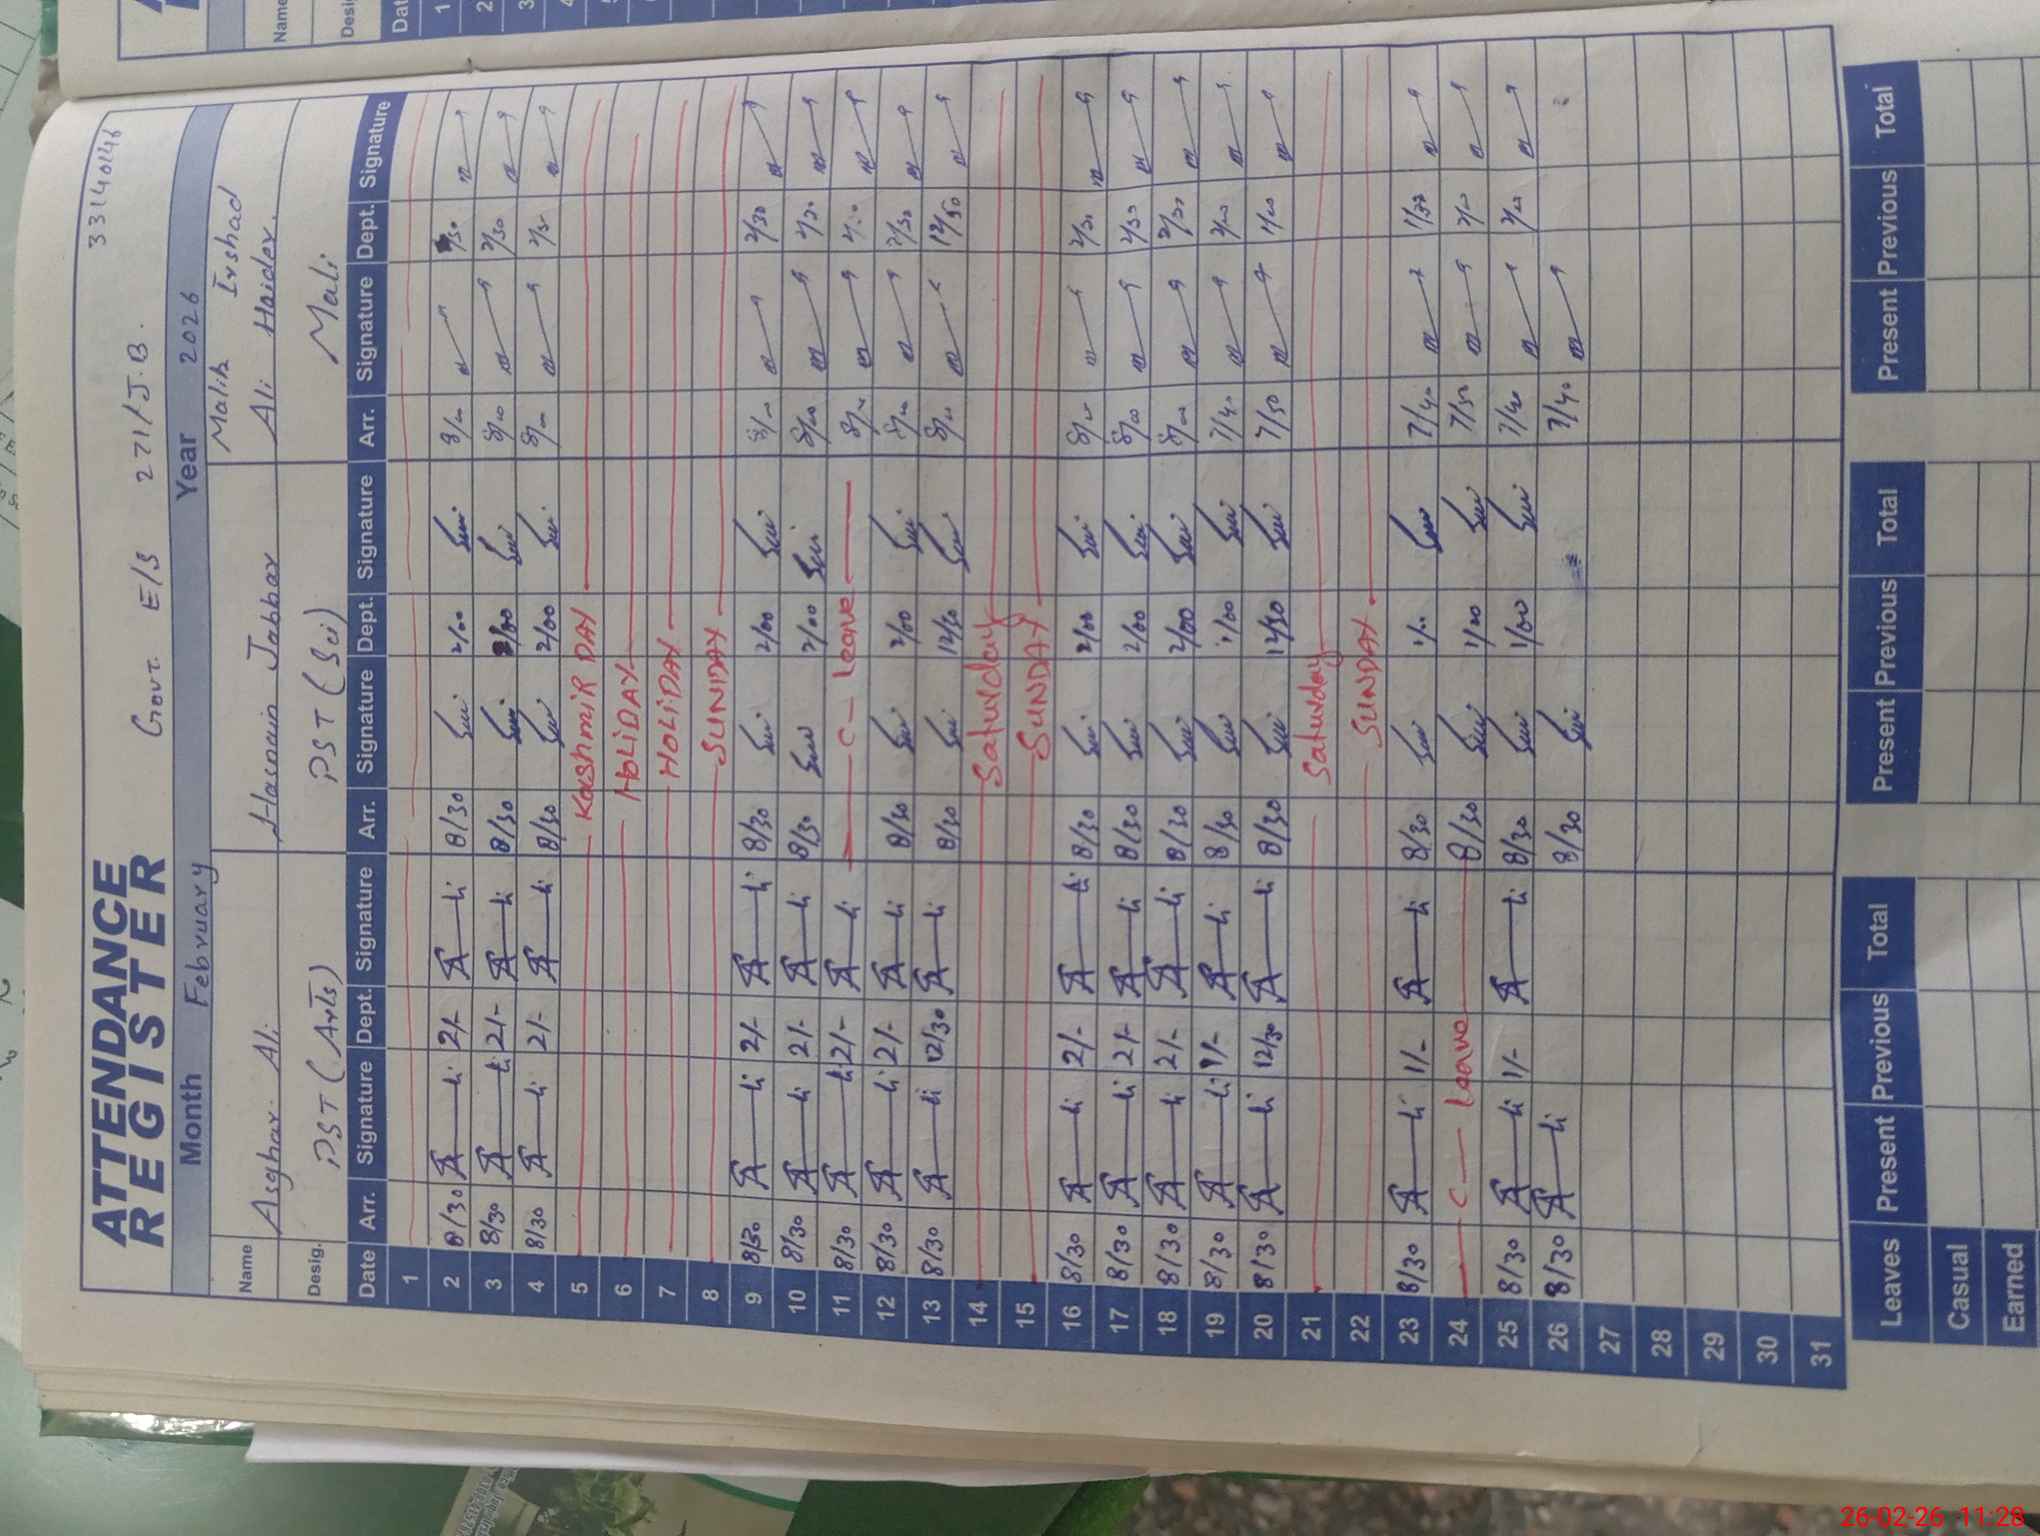 33140146
ATTENDANCE
REGISTER
Govt. E/S 271/J.B.
Month February Year 2026
Name Asghar Ali Hasnain Jabbar Malik Irshad
Ali Haider
Desig. PST (Arts) PST (Sci) Mali
Date Arr. Signature Dept. Signature Arr. Signature Dept. Signature Arr. Signature Dept. Signature
1
2 8/30 A—li 2/- A—li 8/30 2/00 8/00 2/30
3 8/30 A—li 2/- A—li 8/30 2/00 8/00 2/30
4 8/30 A—li 2/- A—li 8/30 2/00 8/00 2/30
5 Kashmir DAY
6 HOLiDAY
7 HOLiDAY
8 SUNDAY
9 8/30 A—li 2/- A—li 8/30 2/00 8/00 2/30
10 8/30 A—li 2/- A—li 8/30 2/00 8/00 2/30
11 8/30 A—li 2/- A—li C — leave 8/00 2/30
12 8/30 A—li 2/- A—li 8/30 2/00 8/00 2/30
13 8/30 A—li 12/30 A—li 8/30 12/30 8/00 12/50
14 Saturday
15 SUNDAY
16 8/30 A—li 2/- A—li 8/30 2/00 8/00 2/30
17 8/30 A—li 2/- A—li 8/30 2/00 8/00 2/30
18 8/30 A—li 2/- A—li 8/30 2/00 8/00 2/30
19 8/30 A—li 1/- A—li 8/30 1/00 7/40 2/00
20 8/30 A—li 12/30 A—li 8/30 12/30 7/50 1/00
21 Saturday
22 SUNDAY
23 8/30 A—li 1/- A—li 8/30 1/00 7/40
24 C — leave 8/30 1/00 7/50 2/00
25 8/30 A—li 1/- A—li 8/30 1/00 7/40 2/00
26 8/30 A—li 8/30 7/40
27
28
29
30
31
Leaves Present Previous Total Present Previous Total Present Previous Total
Casual
Earned
Name
Desig
Dat
1
2
3
4
26-02-26 11:28